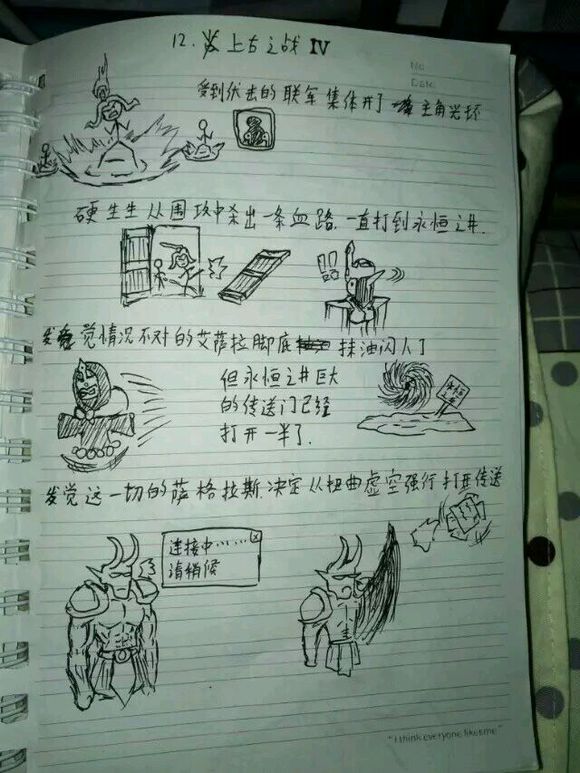 12. 上古之战 IV
No
Date
受到伏击的联军集体开了主角光环
硬生生从围攻中杀出一条血路. 一直打到永恒之井.
发觉情况不对的艾萨拉脚底抹油闪人了
但永恒之井巨大
的传送门已经
打开一半了.
永恒
之井
发觉这一切的萨格拉斯.决定从扭曲虚空强行打开传送
连接中……
x
请稍候
"I think everyone likes me"